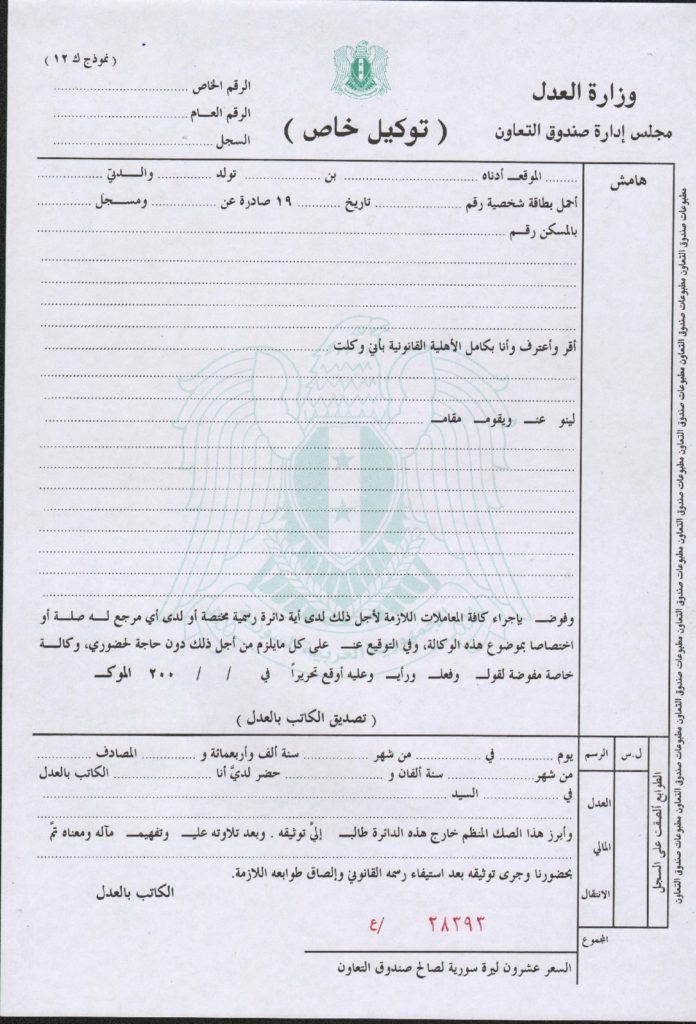 ( نموذج ك ١٢ )
وزارة العدل
مجلس إدارة صندوق التعاون
( توكيل خاص )
الرقم الخاص
الرقم العام
السجل
هامش
الموقعـ أدناه بن تولد والدتيـ
أحمل بطاقة شخصية رقم تاريخ ١٩ صادرة عن ومسجل
بالمسكن رقم
أقر وأعترف وأنا بكامل الأهلية القانونية بأني وكلت
لينو عنـ ويقومـ مقامـ
وفوضـ بإجراء كافة المعاملات اللازمة لأجل ذلك لدى أية دائرة رسمية مختصة أو لدى أي مرجع لـه صلة أو
اختصاصا بموضوع هذه الوكالة، وفي التوقيع عنـ على كل مايلزم من أجل ذلك دون حاجة لحضوري، وكالة
خاصة مفوضة لقولـ وفعلـ ورأيـ وعليه أوقع تحريراً في / / ٢٠٠ الموكـ
( تصديق الكاتب بالعدل )
يوم في من شهر سنة ألف وأربعمائة و المصادف
من شهر سنة ألفان و حضر لديَّ أنا الكاتب بالعدل
في السيد
وأبرز هذا الصك المنظم خارج هذه الدائرة طالبـ إليَّ توثيقه . وبعد تلاوته عليـ وتفهيمـ مآله ومعناه تمَّ
بحضورنا وجرى توثيقه بعد استيفاء رسمه القانوني وإلصاق طوابعه اللازمة.
الكاتب بالعدل
٢٨٣٩٣ /ع
السعر عشرون ليرة سورية لصالح صندوق التعاون
الرسم
ل.س
العدل
المالي
الانتقال
المجموع
الطوابع ألصقت على السجل
مطبوعات صندوق التعاون مطبوعات صندوق التعاون مطبوعات صندوق التعاون مطبوعات صندوق التعاون مطبوعات صندوق التعاون مطبوعات صندوق التعاون